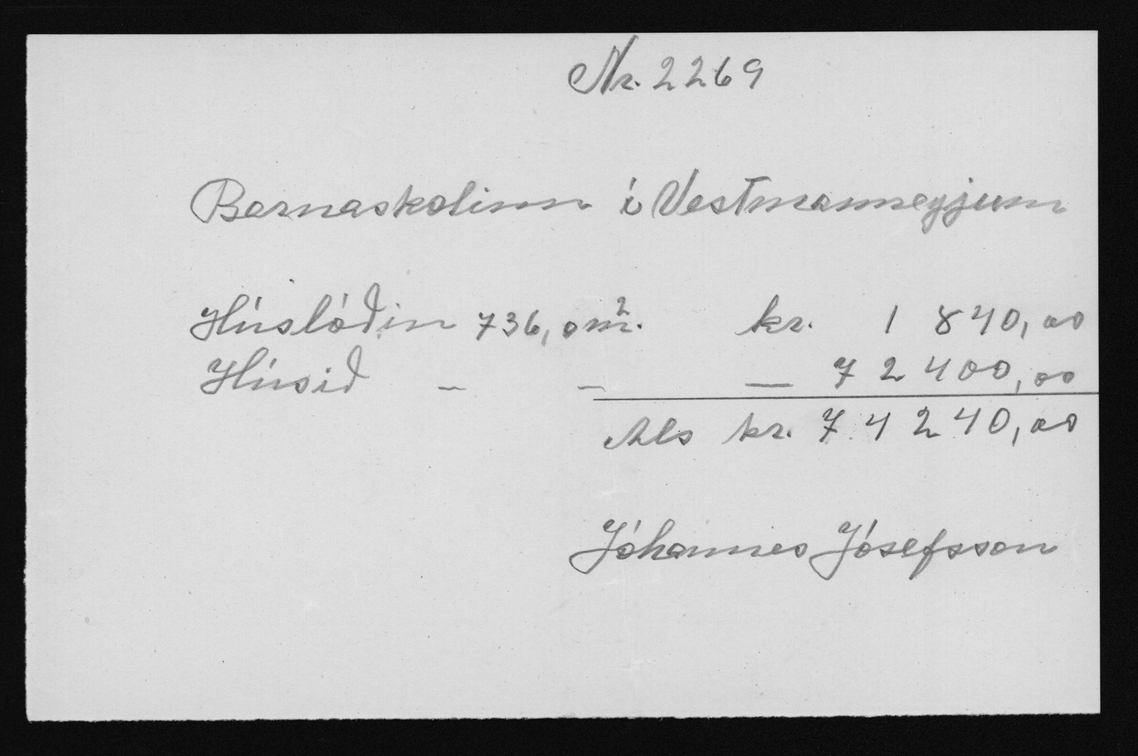 Nr. 2269
Barnaskolinn í Vestmanneyjum
Húslóðin 736,0m². kr. 1 840,00
Húsið – – — 72 400,00
Als kr. 74 240,00
Jóhannes Jósefsson